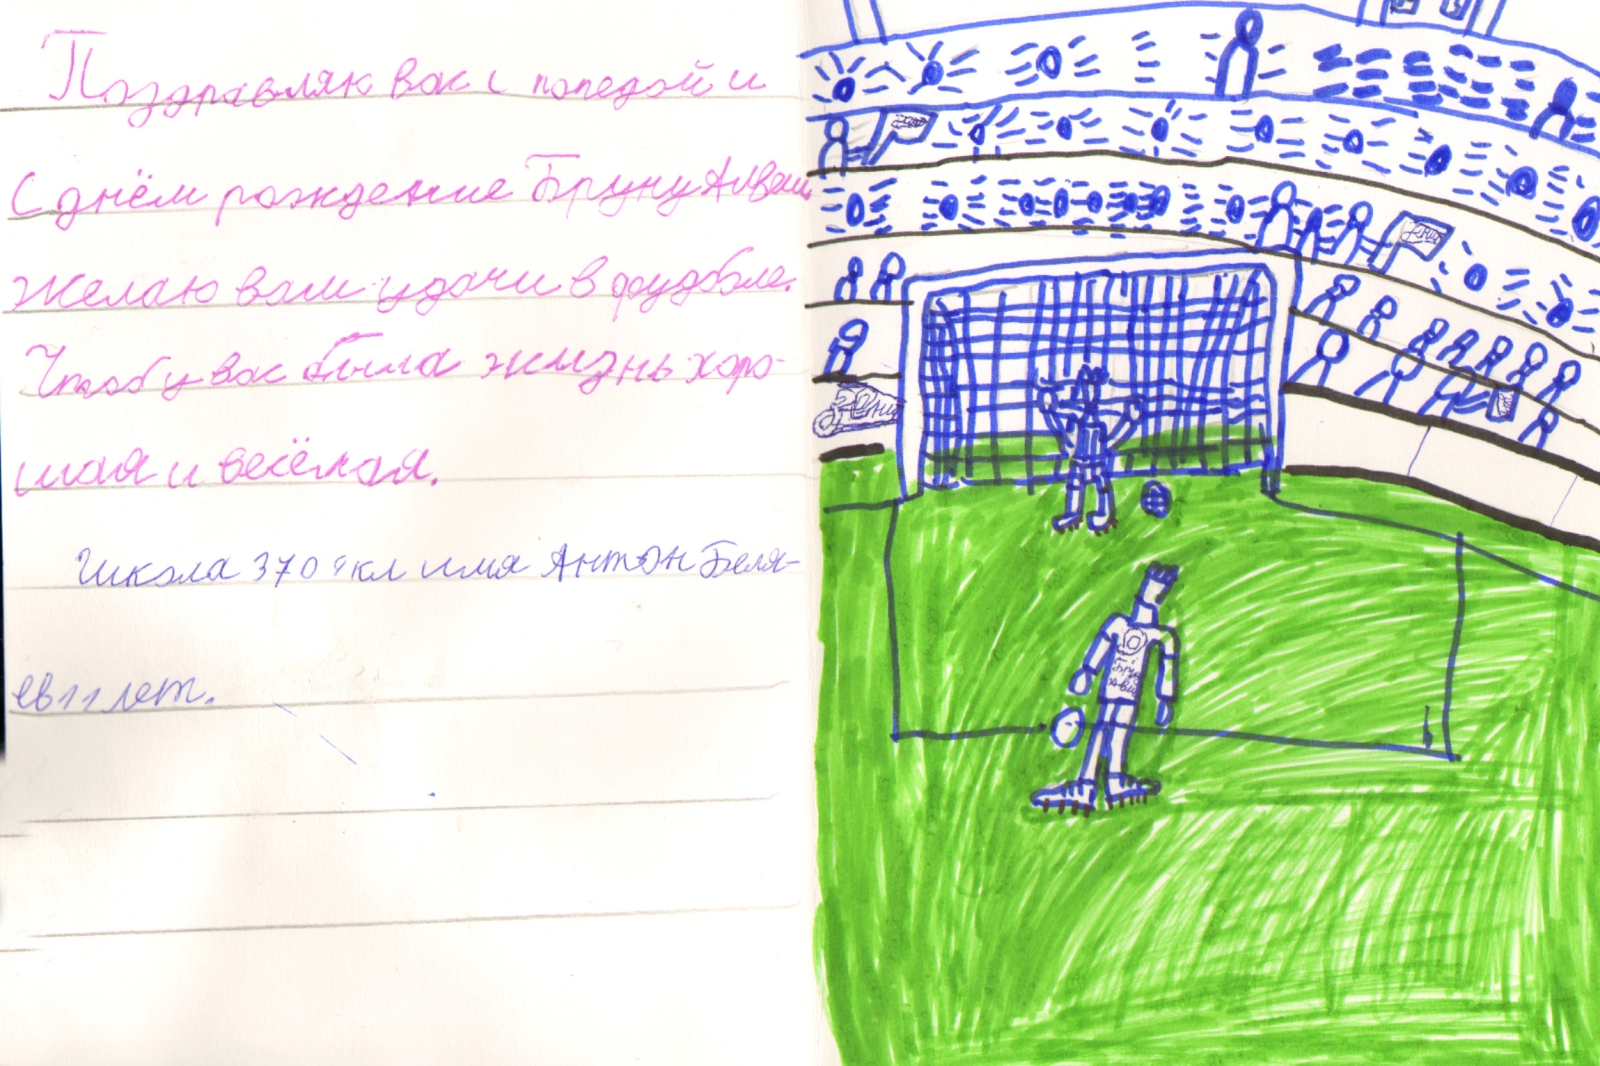 Поздравляю вас с попедой и
С днём рождение Бруну Алвеш,
желаю вам удачи в фудболе.
Чтобы у вас была жизнь хоро-
шая и весёлая.
Школа 370 4кл имя Антон Беля-
ев 11 лет.